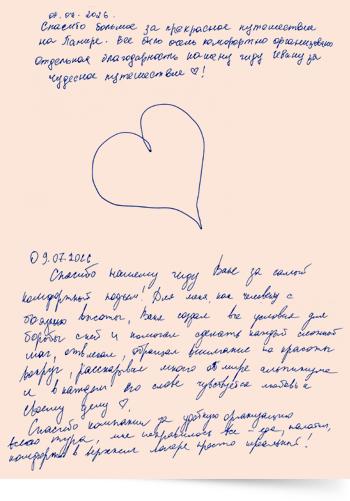 09.07.2026.
Спасибо большое за прекрасное путешествие
на Памире. Все было очень комфортно организовано
Отдельная благодарность нашему гиду Ивану за
чудесное путешествие ♡!
09.07.2026
Спасибо нашему гиду Ване за самый
комфортный подъем! Для меня, как человеку с
боязнью высоты, Ваня создал все условия для
борьбы с ней и помогал сделать каждый сложный
шаг, отвлекал, обращал внимание на красоты
вокруг, рассказывал много о мире альпинизма
и в каждом его слове чувствуется любовь к
своему делу ♡.
Спасибо компании за удобную организацию
всего тура, мне понравилось все – еда, палатки,
комфорт в верхнем лагере просто идеальный!